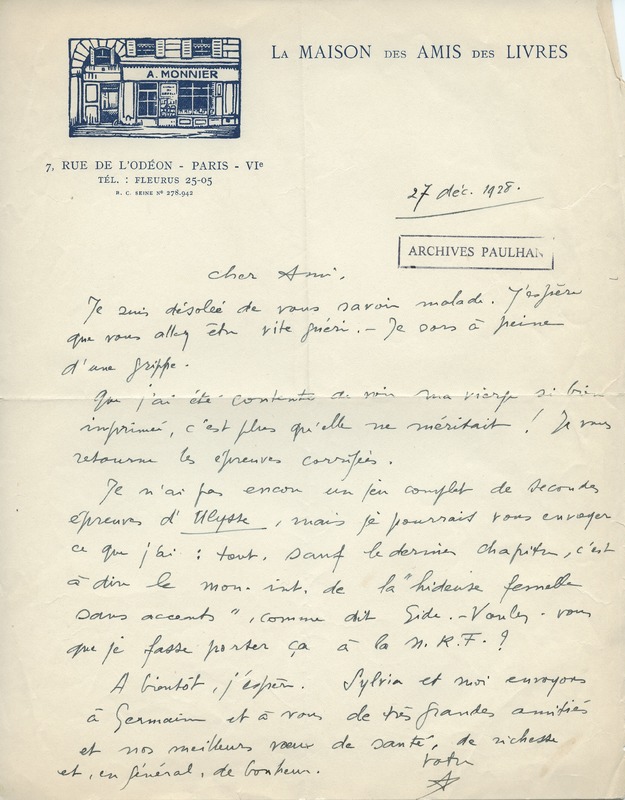 A. MONNIER
LA MAISON DES AMIS DES LIVRES
7, RUE DE L'ODÉON - PARIS - VIe
TÉL. : FLEURUS 25-05
R. C. SEINE No 278.942
27 déc. 1928.
ARCHIVES PAULHAN
Cher Ami,
Je suis désolée de vous savoir malade. J'espère
que vous allez être vite guéri. – Je sors à peine
d'une grippe.
Que j'ai été contente de voir ma vierge si bien
imprimée, c'est plus qu'elle ne méritait ! Je vous
retourne les épreuves corrigées.
Je n'ai pas encore un jeu complet de secondes
épreuves d'Ulysse, mais je pourrais vous envoyer
ce que j'ai : tout, sauf le dernier chapitre, c'est
à dire le mon. int. de la "hideuse femelle
sans accents", comme dit Gide. – Voulez-vous
que je fasse porter ça à la N.R.F. ?
A bientôt, j'espère. Sylvia et moi envoyons
à Germaine et à vous de très grandes amitiés
et nos meilleurs vœux de santé, de richesse
et, en général, de bonheur.
Votre
A